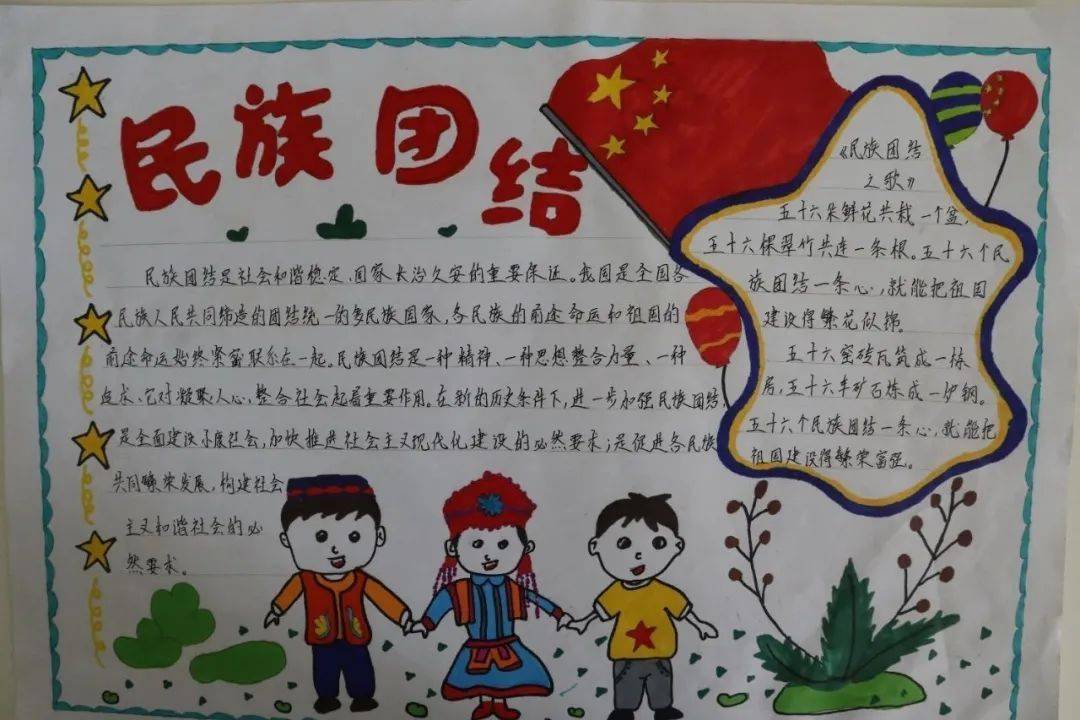 民族团结
民族团结是社会和谐稳定、国家长治久安的重要保证。我国是全国各
民族人民共同缔造的团结统一的多民族国家,各民族的前途命运和祖国的
前途命运始终紧密联系在一起。民族团结是一种精神、一种思想整合力量、一种
追求、它对凝聚人心,整合社会起着重要作用。在新的历史条件下,进一步加强民族团结,
是全面建设小康社会,加快推进社会主义现代化建设的必然要求;是促进各民族
共同繁荣发展,构建社会
主义和谐社会的必
然要求。
《民族团结
之歌》
五十六朵鲜花共栽一个盆,
五十六棵翠竹共连一条根。五十六个民
族团结一条心,就能把祖国
建设得繁花似锦。
五十六窑砖瓦筑成一栋
房,五十六车矿石炼成一炉钢。
五十六个民族团结一条心,就能把
祖国建设得繁荣富强。